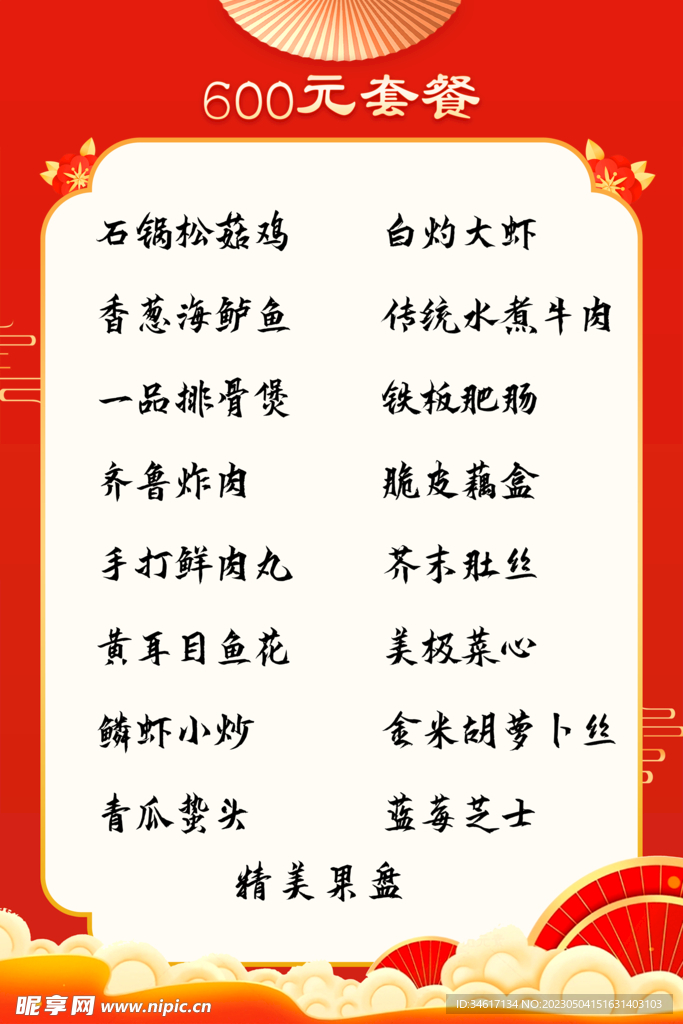 600元套餐
石锅松菇鸡 白灼大虾
香葱海鲈鱼 传统水煮牛肉
一品排骨煲 铁板肥肠
齐鲁炸肉 脆皮藕盒
手打鲜肉丸 芥末肚丝
黄耳目鱼花 美极菜心
鳞虾小炒 金米胡萝卜丝
青瓜蛰头 蓝莓芝士
精美果盘
昵享网 www.nipic.cn
ID:34617134 NO:20230504151631403103